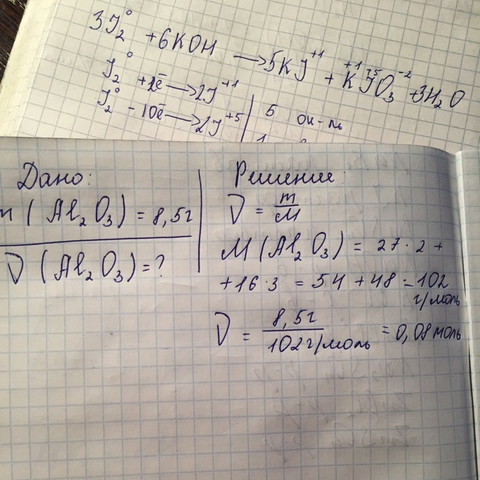 3J₂⁰ + 6KOH → 5KJ⁺¹ + K⁺¹J⁺⁵O₃⁻² + 3H₂O
J₂⁰ + 2ē → 2J⁺¹ | 5 ок-ль
J₂⁰ - 10ē → 2J⁺⁵
Дано:
m (Al₂O₃) = 8,5г
ν (Al₂O₃) = ?
Решение:
ν = m/M
M (Al₂O₃) = 27·2 +
+16·3 = 54 + 48 = 102 г/моль
ν = 8,5г / 102 г/моль = 0,08 моль